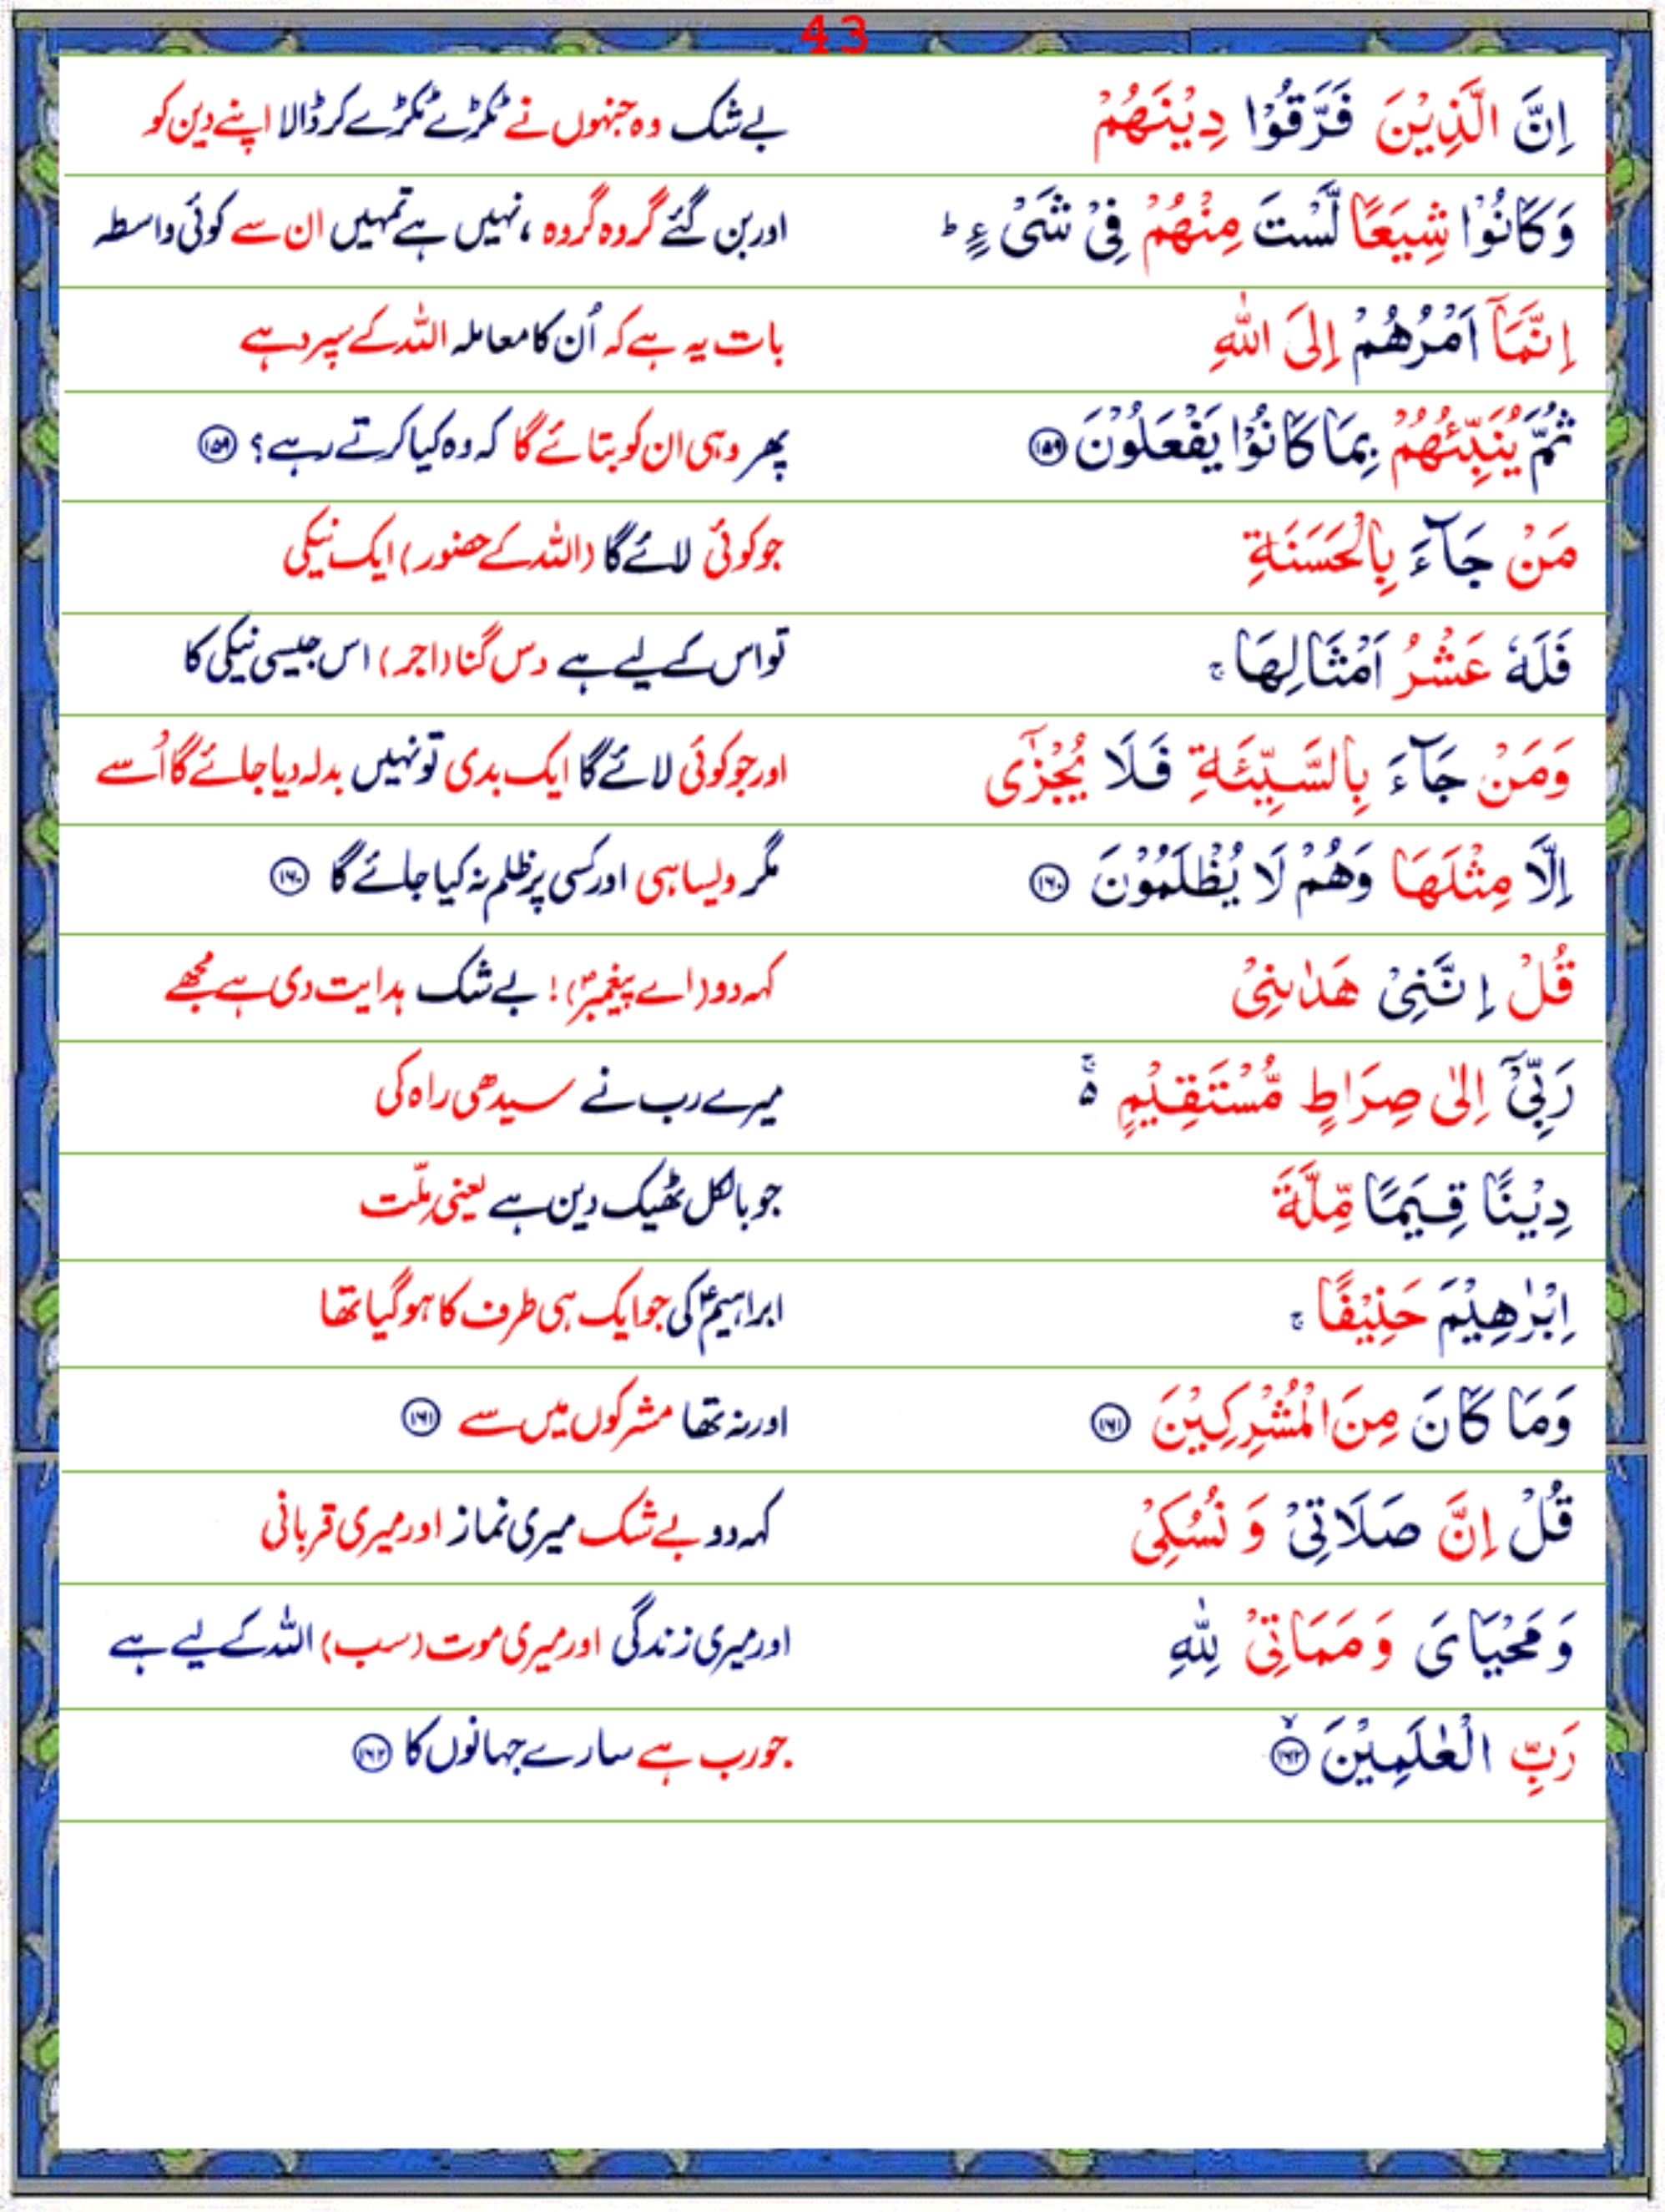 43
اِنَّ الَّذِيْنَ فَرَّقُوْا دِيْنَهُمْ بےشک وہ جنہوں نے ٹکڑے ٹکڑے کر ڈالا اپنے دین کو
وَكَانُوْا شِيَعًا لَّسْتَ مِنْهُمْ فِىْ شَىْءٍ ؕ اور بن گئے گروہ گروہ ، نہیں ہے تمہیں ان سے کوئی واسطہ
اِنَّمَاۤ اَمْرُهُمْ اِلَى اللّٰهِ بات یہ ہے کہ اُن کا معاملہ اللہ کے سپرد ہے
ثُمَّ يُنَبِّئُهُمْ بِمَا كَانُوْا يَفْعَلُوْنَ ﴿۱۵۹﴾ پھر وہی ان کو بتائے گا کہ وہ کیا کرتے رہے؟ ﴿۱۵۹﴾
مَنْ جَآءَ بِالْحَسَنَةِ جو کوئی لائے گا (اللہ کے حضور) ایک نیکی
فَلَهٗ عَشْرُ اَمْثَالِهَا ۚ تو اس کے لیے ہے دس گنا (اجر) اس جیسی نیکی کا
وَمَنْ جَآءَ بِالسَّيِّئَةِ فَلَا يُجْزٰٓى اور جو کوئی لائے گا ایک بدی تو نہیں بدلہ دیا جائے گا اُسے
اِلَّا مِثْلَهَا وَهُمْ لَا يُظْلَمُوْنَ ﴿۱۶۰﴾ مگر ویسا ہی اور کسی پر ظلم نہ کیا جائے گا ﴿۱۶۰﴾
قُلْ اِنَّنِىْ هَدٰٮنِىْ کہہ دو (اے پیغمبرؐ) ! بےشک ہدایت دی ہے مجھے
رَبِّىْۤ اِلٰى صِرَاطٍ مُّسْتَقِيْمٍ ۚ۵ میرے رب نے سیدھی راہ کی
دِيْنًا قِيَمًا مِّلَّةَ جو بالکل ٹھیک دین ہے یعنی ملّت
اِبْرٰهِيْمَ حَنِيْفًا ۚ ابراہیمؑ کی جو ایک ہی طرف کا ہو گیا تھا
وَمَا كَانَ مِنَ الْمُشْرِكِيْنَ ﴿۱۶۱﴾ اور نہ تھا مشرکوں میں سے ﴿۱۶۱﴾
قُلْ اِنَّ صَلَاتِىْ وَ نُسُكِىْ کہہ دو بےشک میری نماز اور میری قربانی
وَ مَحْيَاىَ وَ مَمَاتِىْ لِلّٰهِ اور میری زندگی اور میری موت (سب) اللہ کے لیے ہے
رَبِّ الْعٰلَمِيْنَ ۙ﴿۱۶۲﴾ جو رب ہے سارے جہانوں کا ﴿۱۶۲﴾